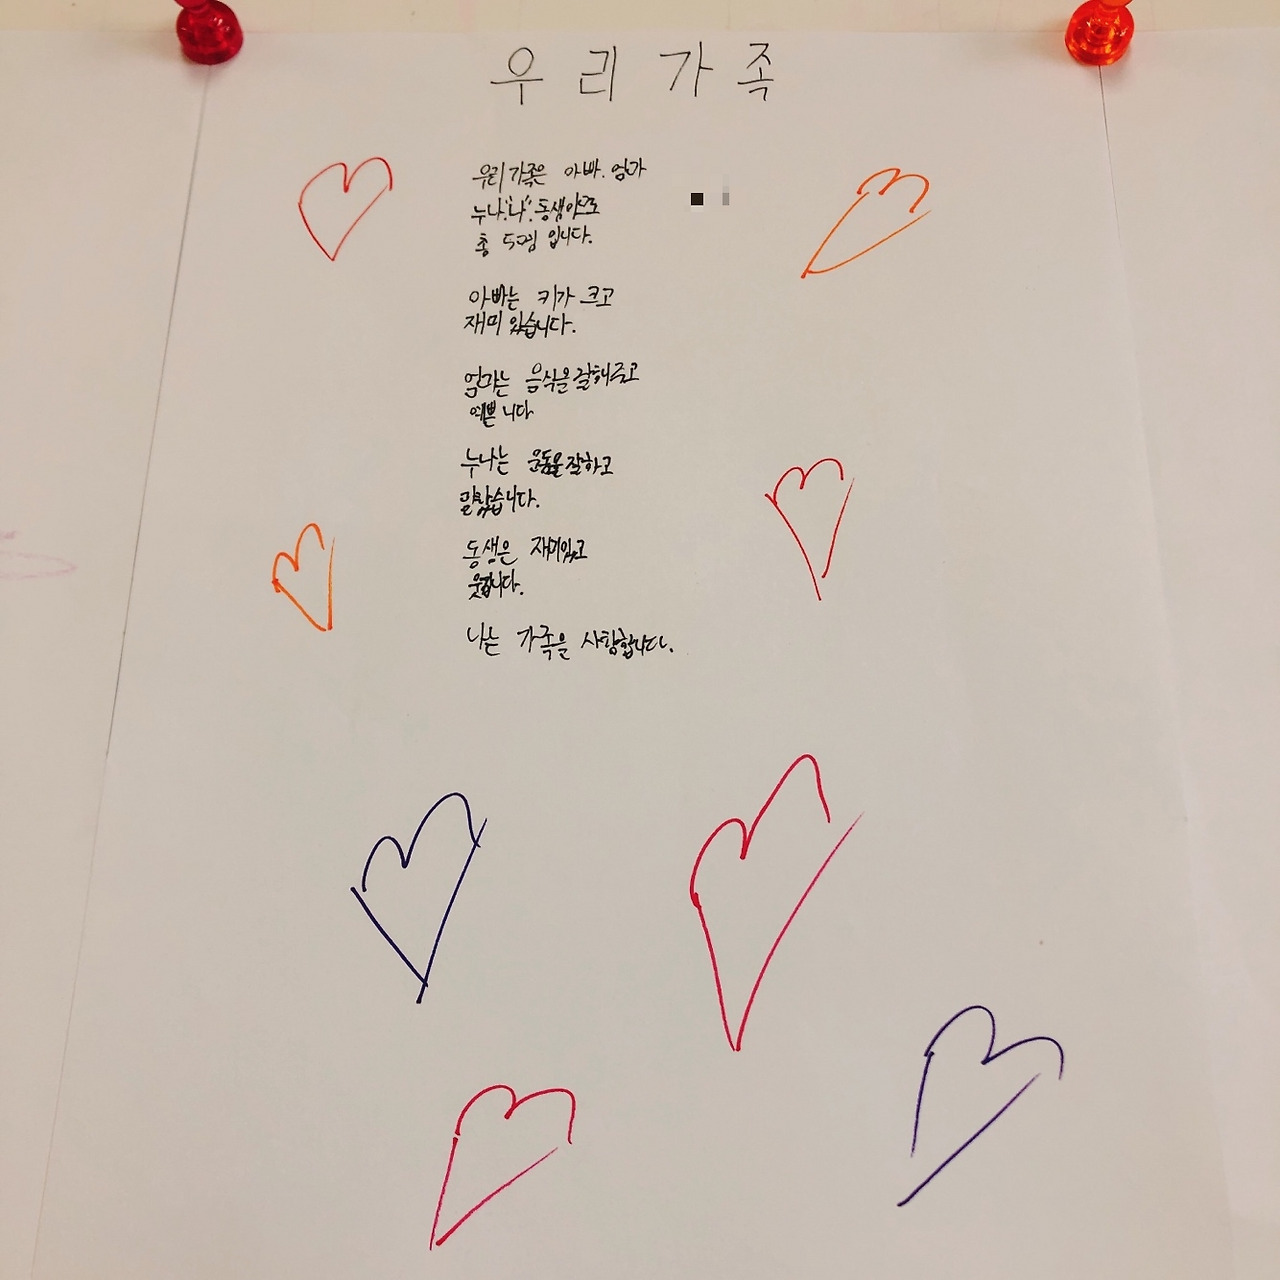 우리가족
우리가족은 아빠. 엄마
누나."나". 동생으로
총 5명 입니다.
아빠는 키가 크고
재미 있습니다.
엄마는 음식을 잘해주고
예쁩니다
누나는 운동을 잘하고
동생은 재미있고
웃깁니다.
나는 가족을 사랑합니다.